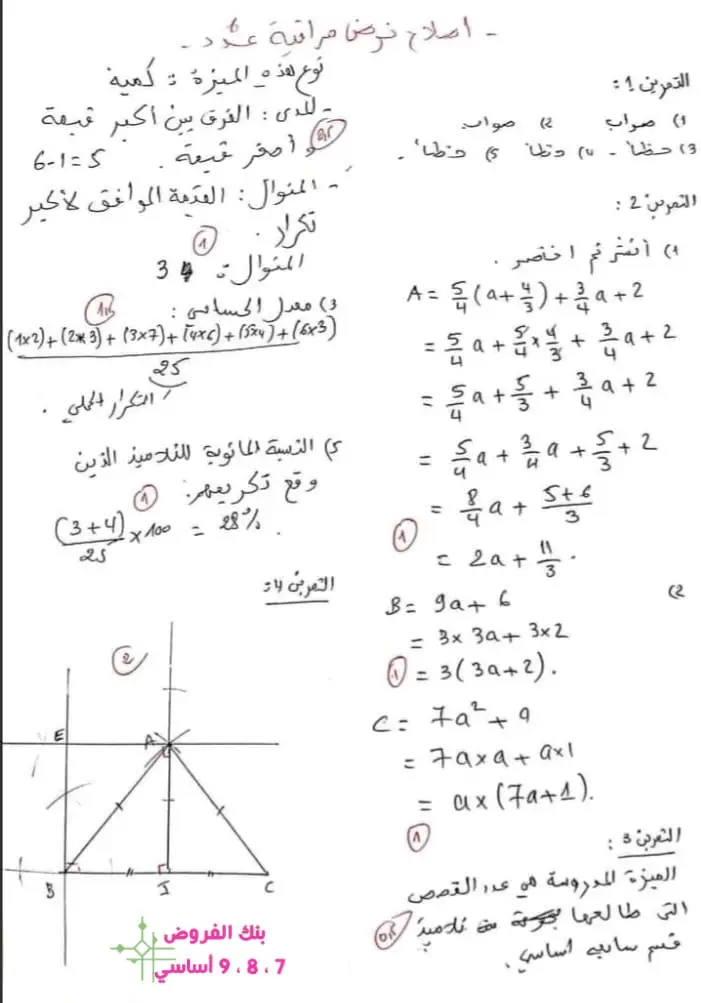 - اصلاح فرض مراقبة عدد 6 -
التمرين 1:
1) صواب 2) صواب
3) خطأ - 4) خطأ 5) خطأ -
التمرين 2:
1) أنشر ثم اختصر.
A = 5/4 (a + 4/3) + 3/4 a + 2
= 5/4 a + 5/4 × 4/3 + 3/4 a + 2
= 5/4 a + 5/3 + 3/4 a + 2
= 5/4 a + 3/4 a + 5/3 + 2
= 8/4 a + (5+6)/3
1
= 2a + 11/3 .
2) B = 9a + 6
= 3 × 3a + 3 × 2
1 = 3(3a+2).
C = 7a² + a
= 7a×a + a×1
= a×(7a+1).
1
التمرين 3:
الميزة المدروسة هي عدد القصص
التي طالعها تلاميذ
0,5
قسم سابعة أساسي.
نوع هذه الميزة: كمية
- المدى: الفرق بين أكبر قيمة
0,5
و أصغر قيمة. 6-1=5
- المنوال: القيمة الموافق لأكبر
تكرار.
1
المنوال: 3
3) معدل الحسابي:
1,5
((1×2)+(2×3)+(3×7)+(4×6)+(5×4)+(6×3))/25
التكرار الجملي.
5) النسبة المائوية للتلاميذ الذين
وقع تكريمهم:
1
(3+4)/25 × 100 = 28% .
التمرين 4:
2
E
A
B
I
C
بنك الفروض
7 ، 8 ، 9 أساسي